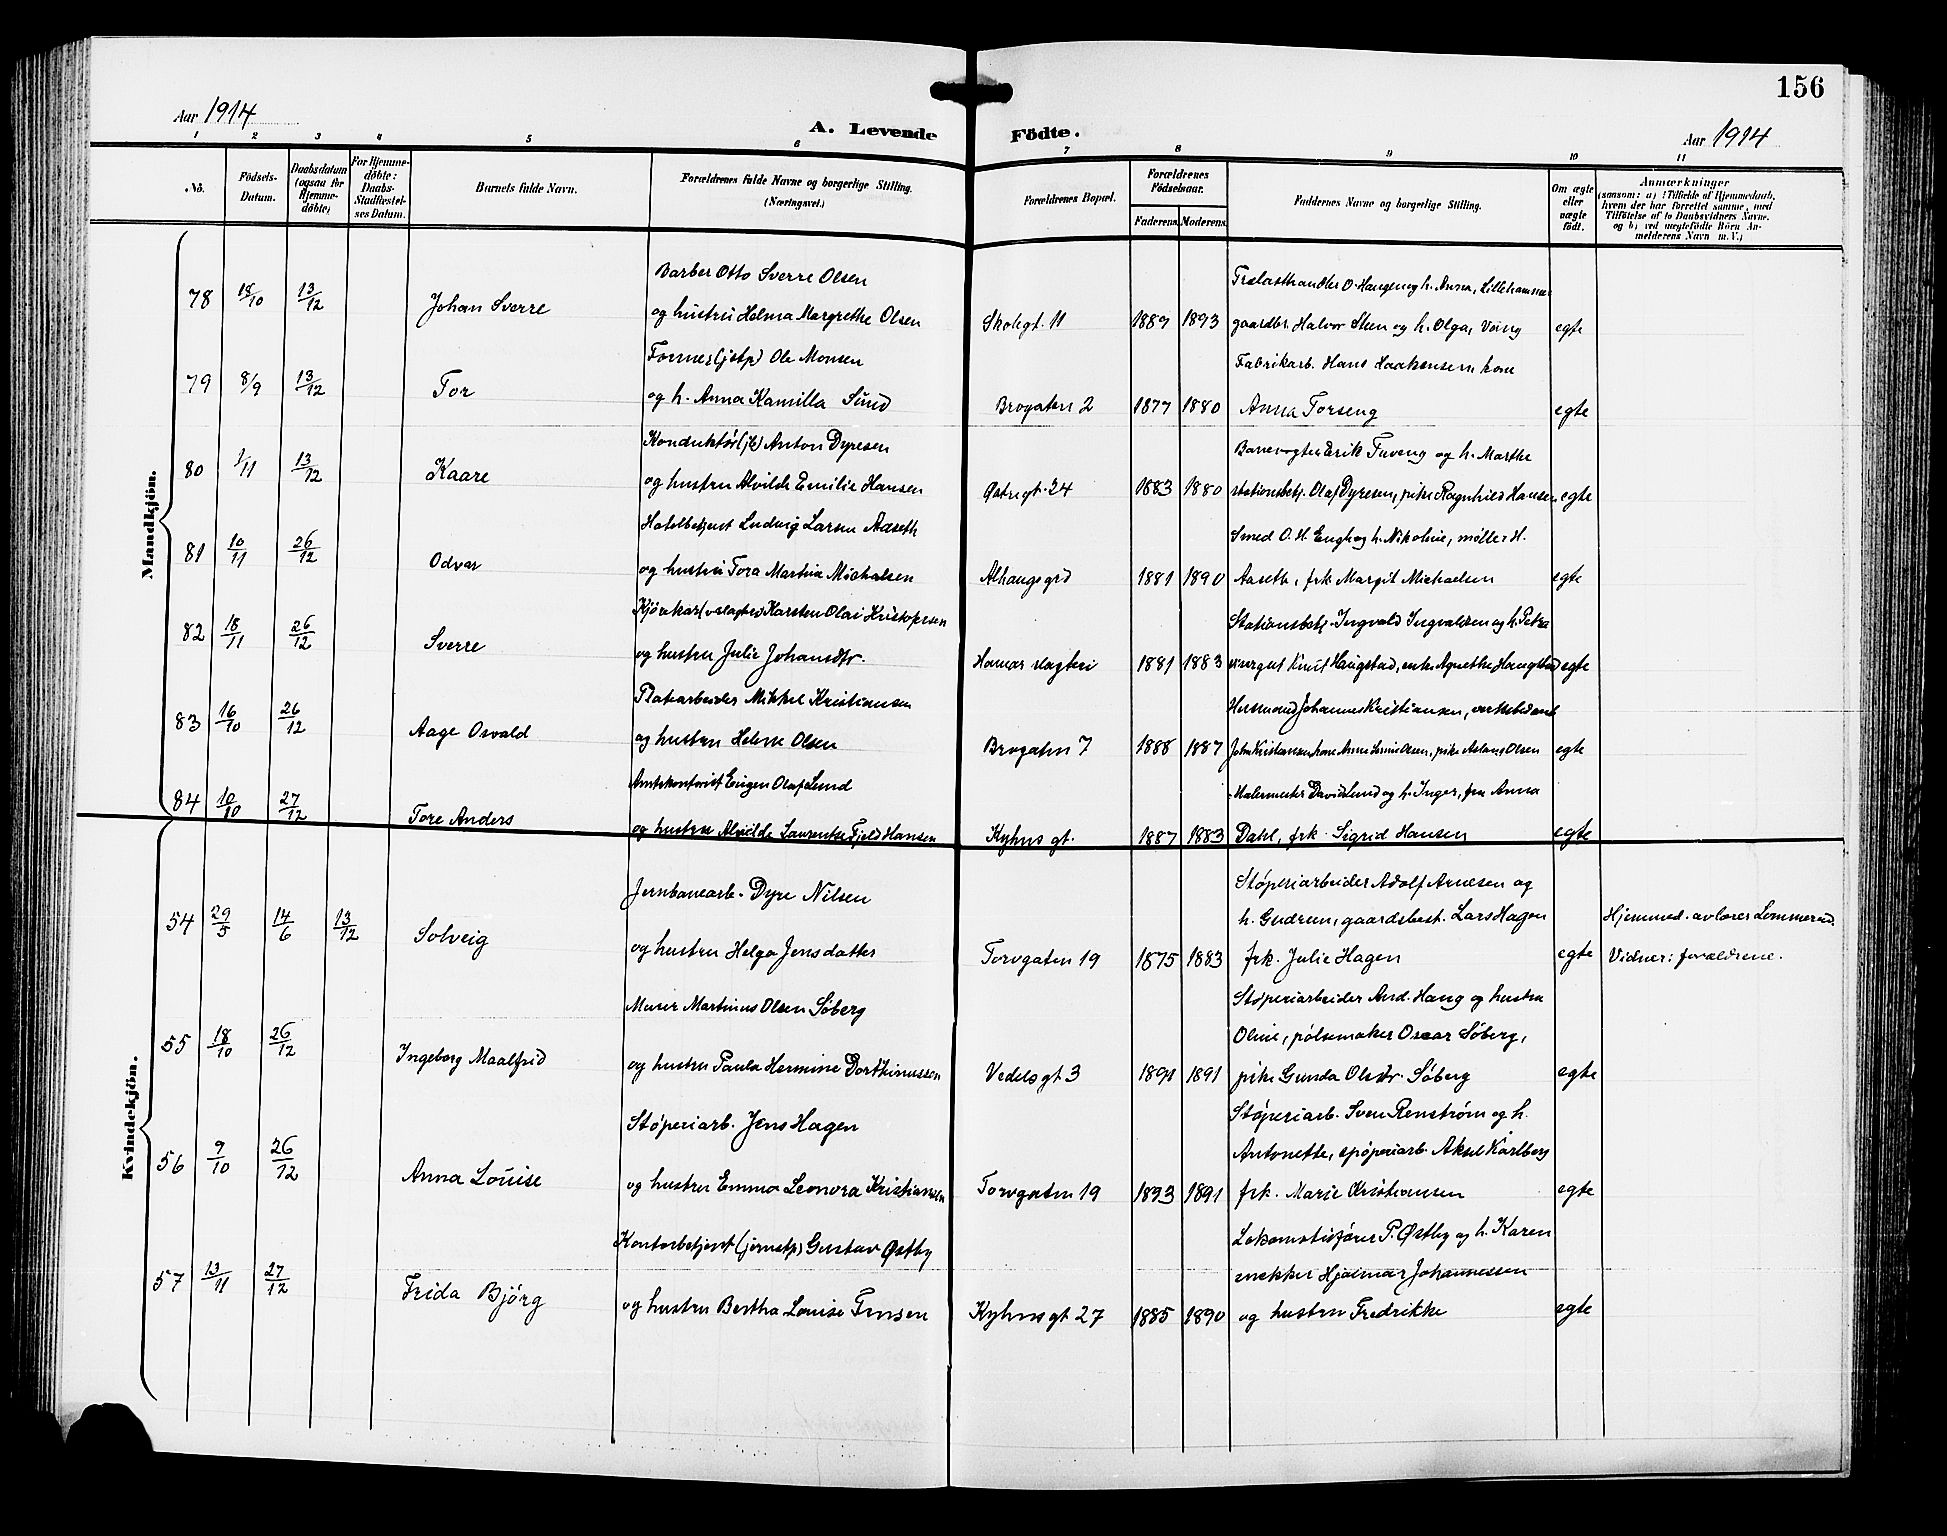 156
Aar 1914
A. Levende Födte.
Aar 1914
1 2 3 4 5 6 7 8 9 10 11
No.
Födsels-Datum.
Daabsdatum (ogsaa for Hjemme-döbte)
For Hjemme-döbte: Daabs-Stadfæstel-ses Datum.
Barnets fulde Navn.
Forældrenes fulde Navne og borgerlige Stilling.
(Næringsvei.)
Forældrenes Bopæl.
Forældrenes Födselsaar.
Faderens. Moderens.
Faddernes Navne og borgerlige Stilling.
Om ægte eller uægte födt.
Anmærkninger
(saasom: a) i Tilfælde af Hjemmedaab,
hvem der har forrettet samme, med
Tilföielse af to Daabsvidners Navne.
og b) ved uægtefödte Börn An-
melderens Navn m. V.)
Mandkjön.
Barber Otto Sverre Olsen
78 18/10 13/12 Johan Sverre og hustru Helma Margrethe Olsen Skolegt. 11 1889 1893 gaardbr. Halvor Steen og h. Olga, Vang egte
Trælasthandler O. Haugen og h. Anna, Lillehammer
Former (jstp) Ole Monsen
Fabrikarb. Hans Haakensen kone
79 8/9 13/12 Tor og h. Anna Kamilla Sund Brogaten 2 1877 1880 Anna Torseng egte
Konduktør (jb) Anton Dyresen
Banevogter Erik Tuveng og h. Marthe
80 1/11 13/12 Kaare og hustru Alvilde Emilie Hansen Østregt. 24 1883 1880 stationsbetj. Olaf Dyresen, pike Ragnhild Hansen egte
Hotelbetjent Ludvig Larsen Aaseth
Smed O. H. Engh og h. Nikoline, møller H.
81 10/11 26/12 Odvar og hustru Tora Martina Michalsen 1881 1890 Aaseth, frk Margit Michaelsen egte
Kjørekar (v slagteri) Karsten Olai Kristofersen
Stationsbetj. Ingvald Ingvaldsen og h. Petra
82 18/11 26/12 Sverre og hustru Julie Johansdtr. Hamar slagteri 1881 1883 Knut Haugstad, enke Agnethe Haugstad egte
Platearbeider Mikkel Kristiansen
Johannes Kristiansen,
83 16/10 26/12 Aage Osvald og hustru Helene Olsen Brogaten 7 1888 1887 Olsen, pike Aslaug Olsen egte
Amtskontorist Eugen Olaf Lund
Malermester David Lund og h. Inger, fru Anna
84 10/10 27/12 Tore Anders og hustru Alvilde Laurentze Fjeld Hansen Kyhns gt. 1887 1883 Dahl, frk. Sigrid Hansen egte
Kvindekjön.
Jernbanearb. Dyre Nilsen
Støperiarbeider Adolf Arnesen og
h. Gudrun, gaardsbest. Lars Hagen
Hjemmed. av lærer Lommerud.
54 29/5 14/6 13/12 Solveig og hustru Helga Jensdatter Torvgaten 19 1875 1883 frk. Julie Hagen egte Vidner: forældrene.
Murer Martinus Olsen Søberg
Støperiarbeider And. Haug og hustru
Oline, pølsemaker Oscar Søberg,
55 18/10 26/12 Ingeborg Maalfrid og hustru Paula Hermine Dorthinussen Vedels gt 3 1891 1891 pike Gunda Olsdtr. Søberg egte
Støperiarb. Jens Hagen
Støperiarb. Sven Renstrøm og h.
Antonette, spøperiarb. Aksel Karlberg
56 9/10 26/12 Anna Louise og hustru Emma Leonora Kristiansen Torvgaten 19 1893 1891 frk. Marie Kristiansen egte
Kontorbetjent (jernstp) Gustav Østby
Lokomotivfører P. Østby og h. Karen
snekker Hjalmar Johannessen
57 13/11 27/12 Frida Bjørg og hustru Bertha Louise Jensen Kyhnsgt 27 1885 1890 og hustru Fredrikke egte